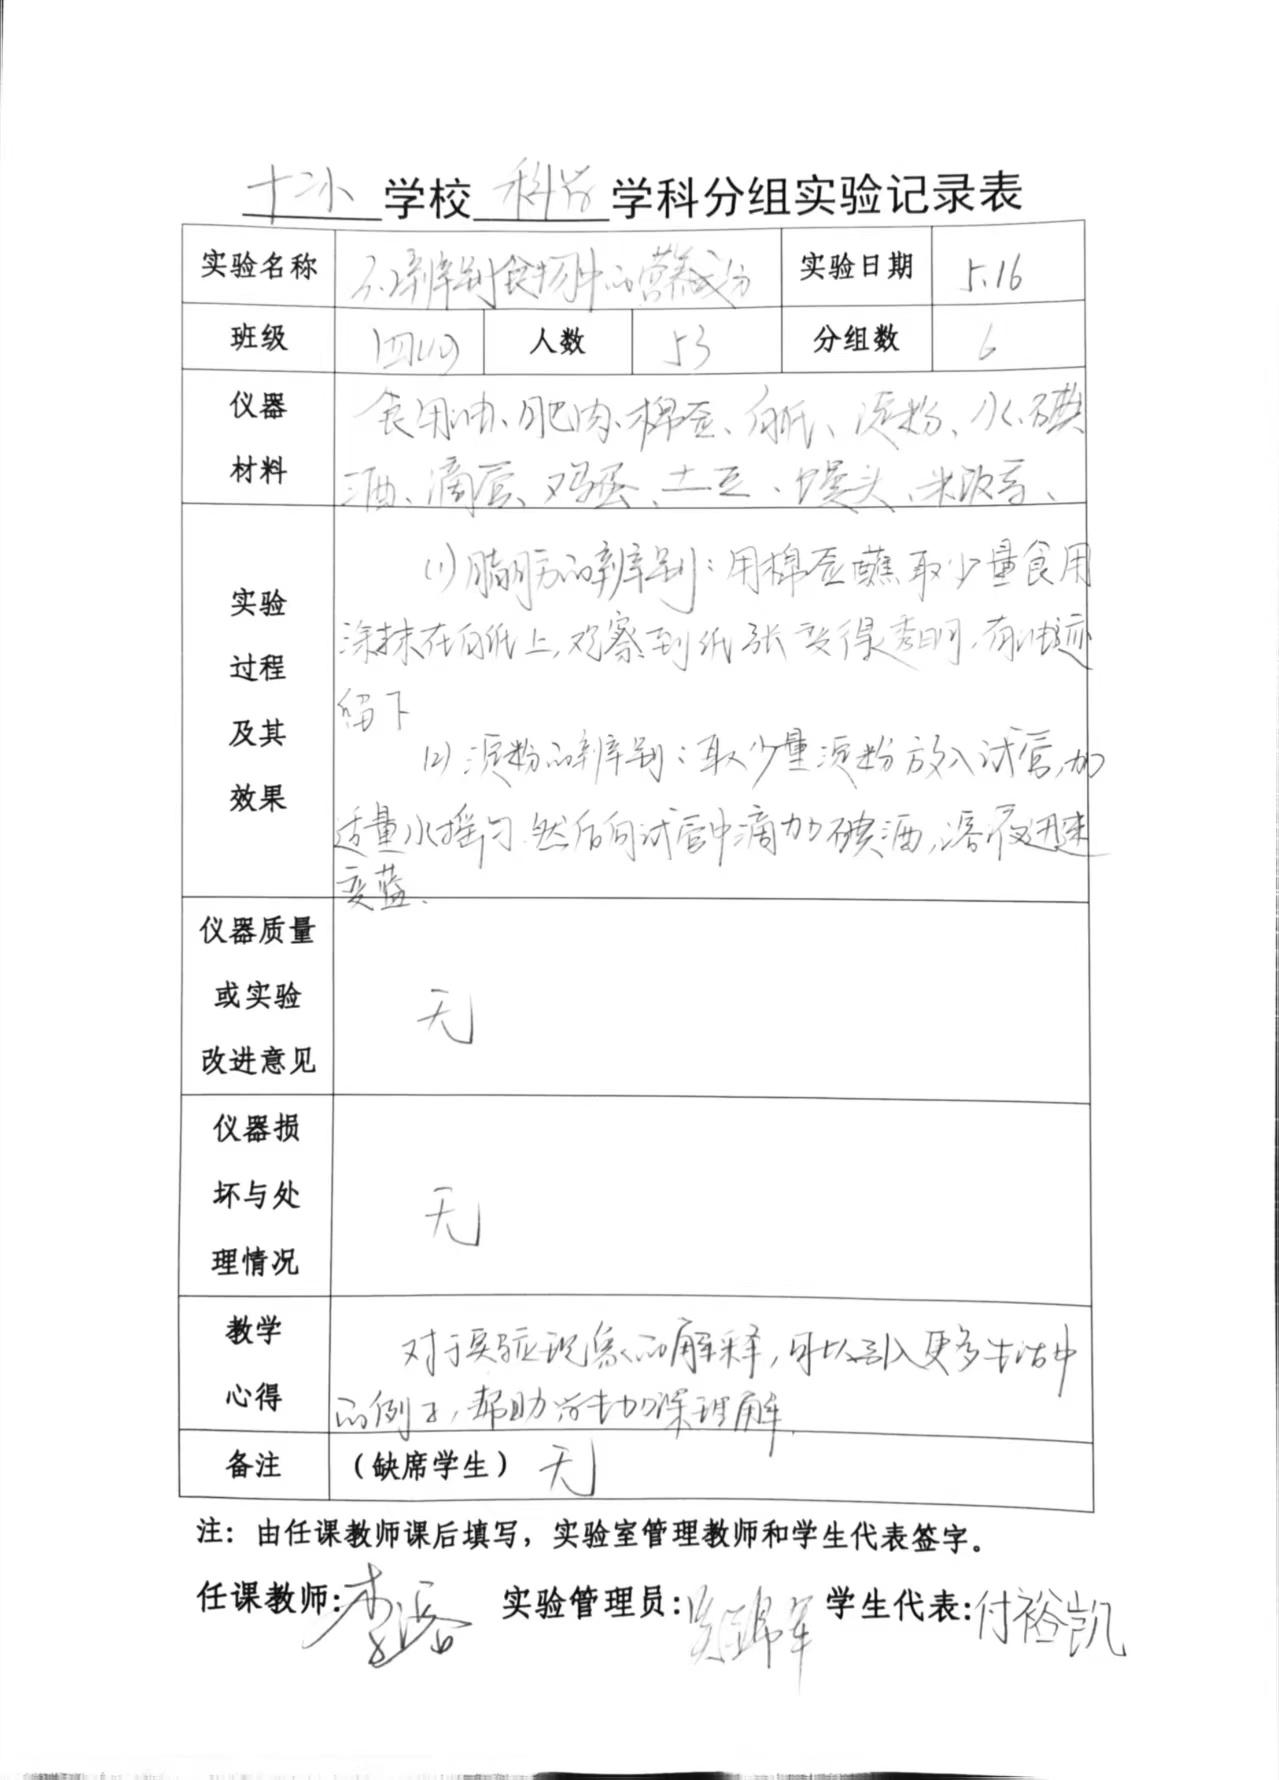 十二小 学校 科学 学科分组实验记录表
实验名称 2.辨别食物中的营养成分 实验日期 5.16
班级 四(4) 人数 53 分组数 6
仪器材料 食用油、肥肉、棉签、白纸、淀粉、水、碘
酒、滴管、鸡蛋、土豆、馒头、米饭等、
实验过程及其效果 (1)脂肪的辨别:用棉签蘸取少量食用
涂抹在白纸上,观察到纸张变得透明,有油迹
留下
(2)淀粉的辨别:取少量淀粉放入试管,加
适量水摇匀.然后向试管中滴加碘酒,溶液迅速
变蓝.
仪器质量或实验改进意见 无
仪器损坏与处理情况 无
教学心得 对于实验现象的解释,可以引入更多生活中
的例子,帮助学生加深理解.
备注 (缺席学生) 无
注:由任课教师课后填写,实验室管理教师和学生代表签字。
任课教师: 实验管理员: 学生代表:付裕凯